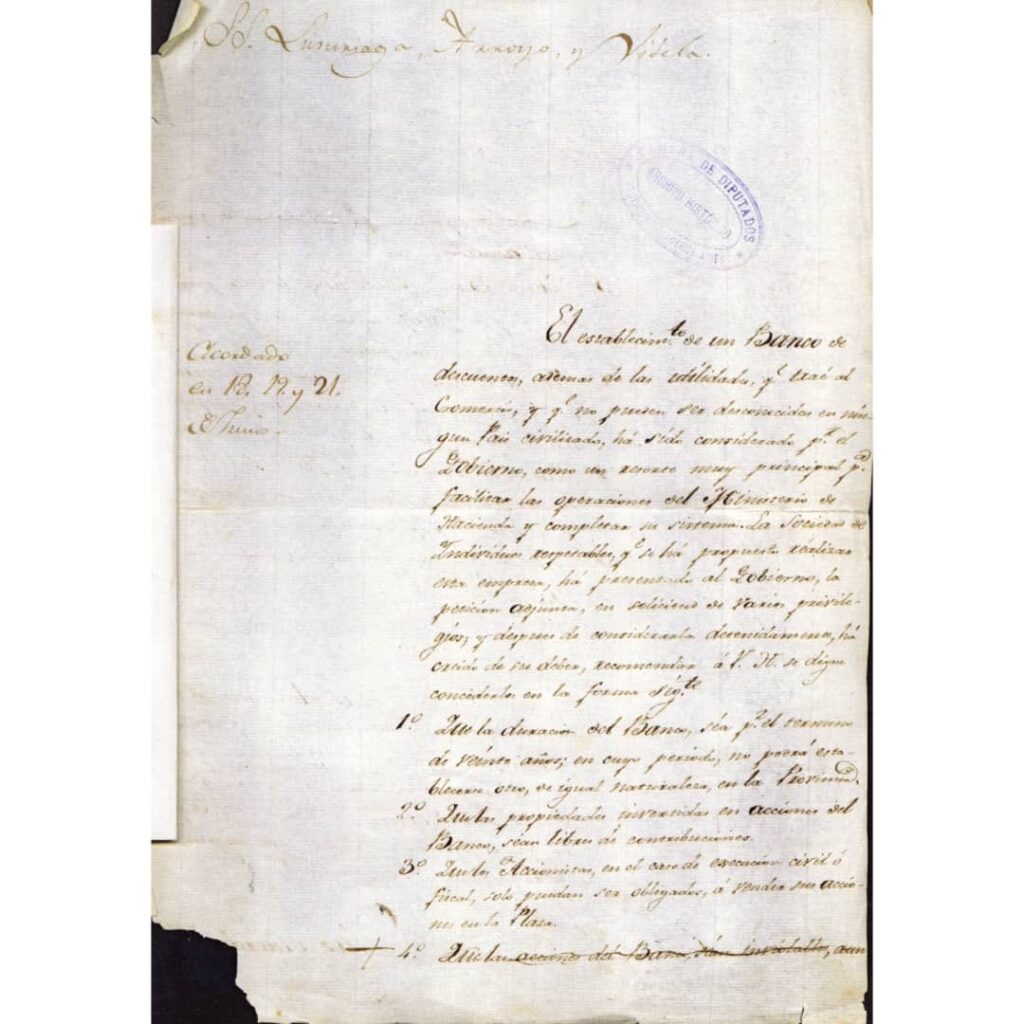 SS. Lusuriaga, Arroyo, y Videla.
DE DIPUTADOS
ARCHIVO HISTÓRICO
Acordado
en 18. 19. y 21.
de Junio
El establecim.to de un Banco de
descuento, ademas de las utilidades, q.e traé al
Comercio, y q.e no pueden ser desconocidas en nin-
gun Pais civilizado, há sido considerado p.r el
Gobierno, como un resorte muy principal p.a
facilitar las operaciones del Ministerio de
Hacienda y completar su sistema. La Sociedad de
Individuos respetables, q.e se há propuesto realizar
esta empresa, há presentado al Gobierno, la
peticion adjunta, en solicitud de varios privile-
gios; y despues de considerarla detenidamente, há
creido de su deber, recomendar á V. H. se digne
concederlos en la forma sig.te
1.o Que la duracion del Banco, séa p.r el termino
de veinte años; en cuyo periodo, no podrá esta-
blecerse otro, de igual naturaleza, en la Provincia.
2.o Que las propiedades invertidas en acciones del
Banco, séan libres de contribuciones.
3.o Que los Accionistas, en el caso de execucion civil ó
fiscal, solo puedan ser obligados, á vender sus accio-
nes en la Plaza.
4.o Que las acciones del Banco, séan inviolables, aun